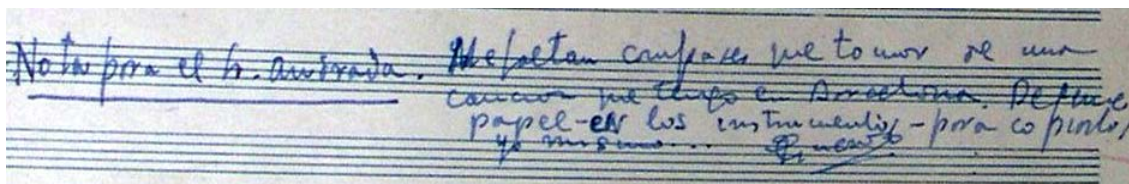 Nota para el Sr. Andrada. Me faltan compases que tomar de una
cancion que tengo en Barcelona. Dejeme
papel-en los instrumentos-para copiarlos
yo mismo...